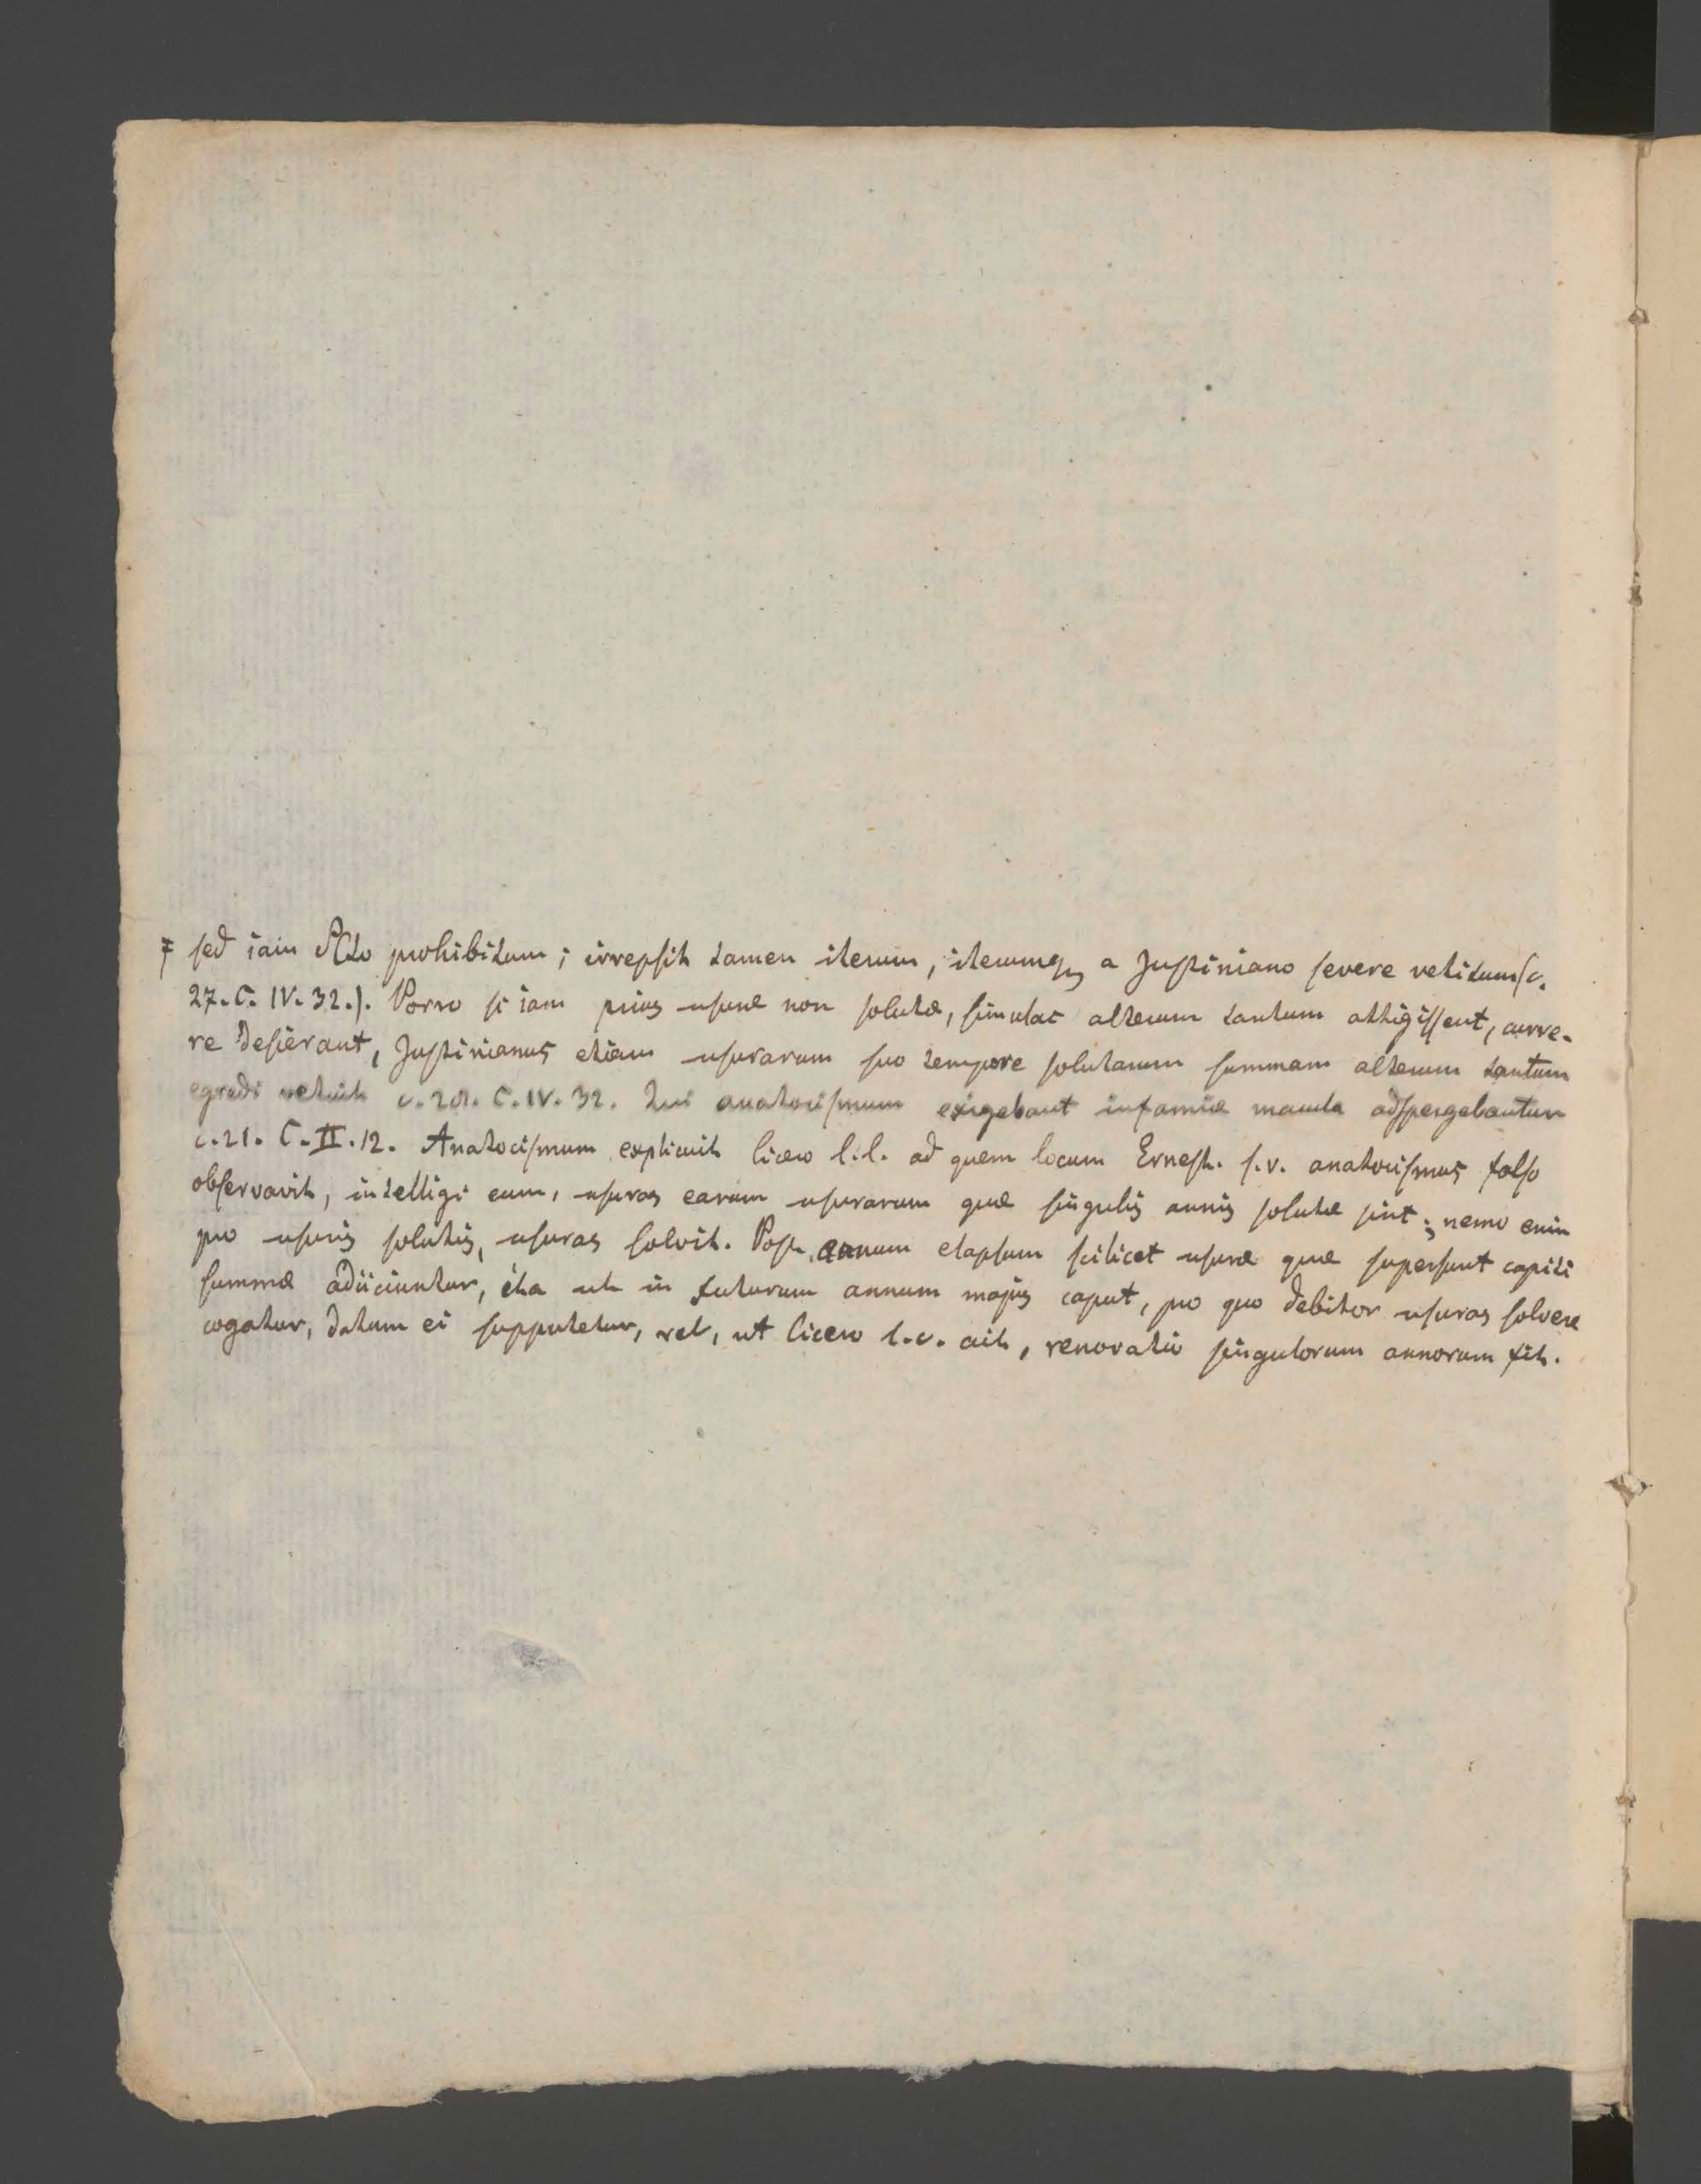 ‡ sed iam SCto prohibitum; irrepsit tamen iterum, iterumq a Justiniano severe vetitum (c.
27. C. IV. 32.). Porro si iam prius usuræ non solutæ, simulac alterum tantum attigissent, curre-
re desierant, Justinianus etiam usurarum suo tempore solutarum summam alterum tantum
egredi vetuit c. C. IV. 32. Qui anatocismum exigebant infamiæ macula adspergebantur
c. 21. C. II. 12. Anatocismum explicuit Cicero l.l. ad quem locum Ernest. s.v. anatocismus falso
observavit, intelligi eum, usuras earum usurarum quæ singulis annis solutæ sint; nemo enim
pro usuris solutis, usuras solvit. Post annum elapsum scilicet usuræ quæ supersunt capiti
summæ adiiciuntur, ita ut in futurum annum majus caput, pro quo debitor usuras solvere
cogatur, datum ei supputetur, vel, ut Cicero l.c. ait, renovatio singulorum annorum fit.